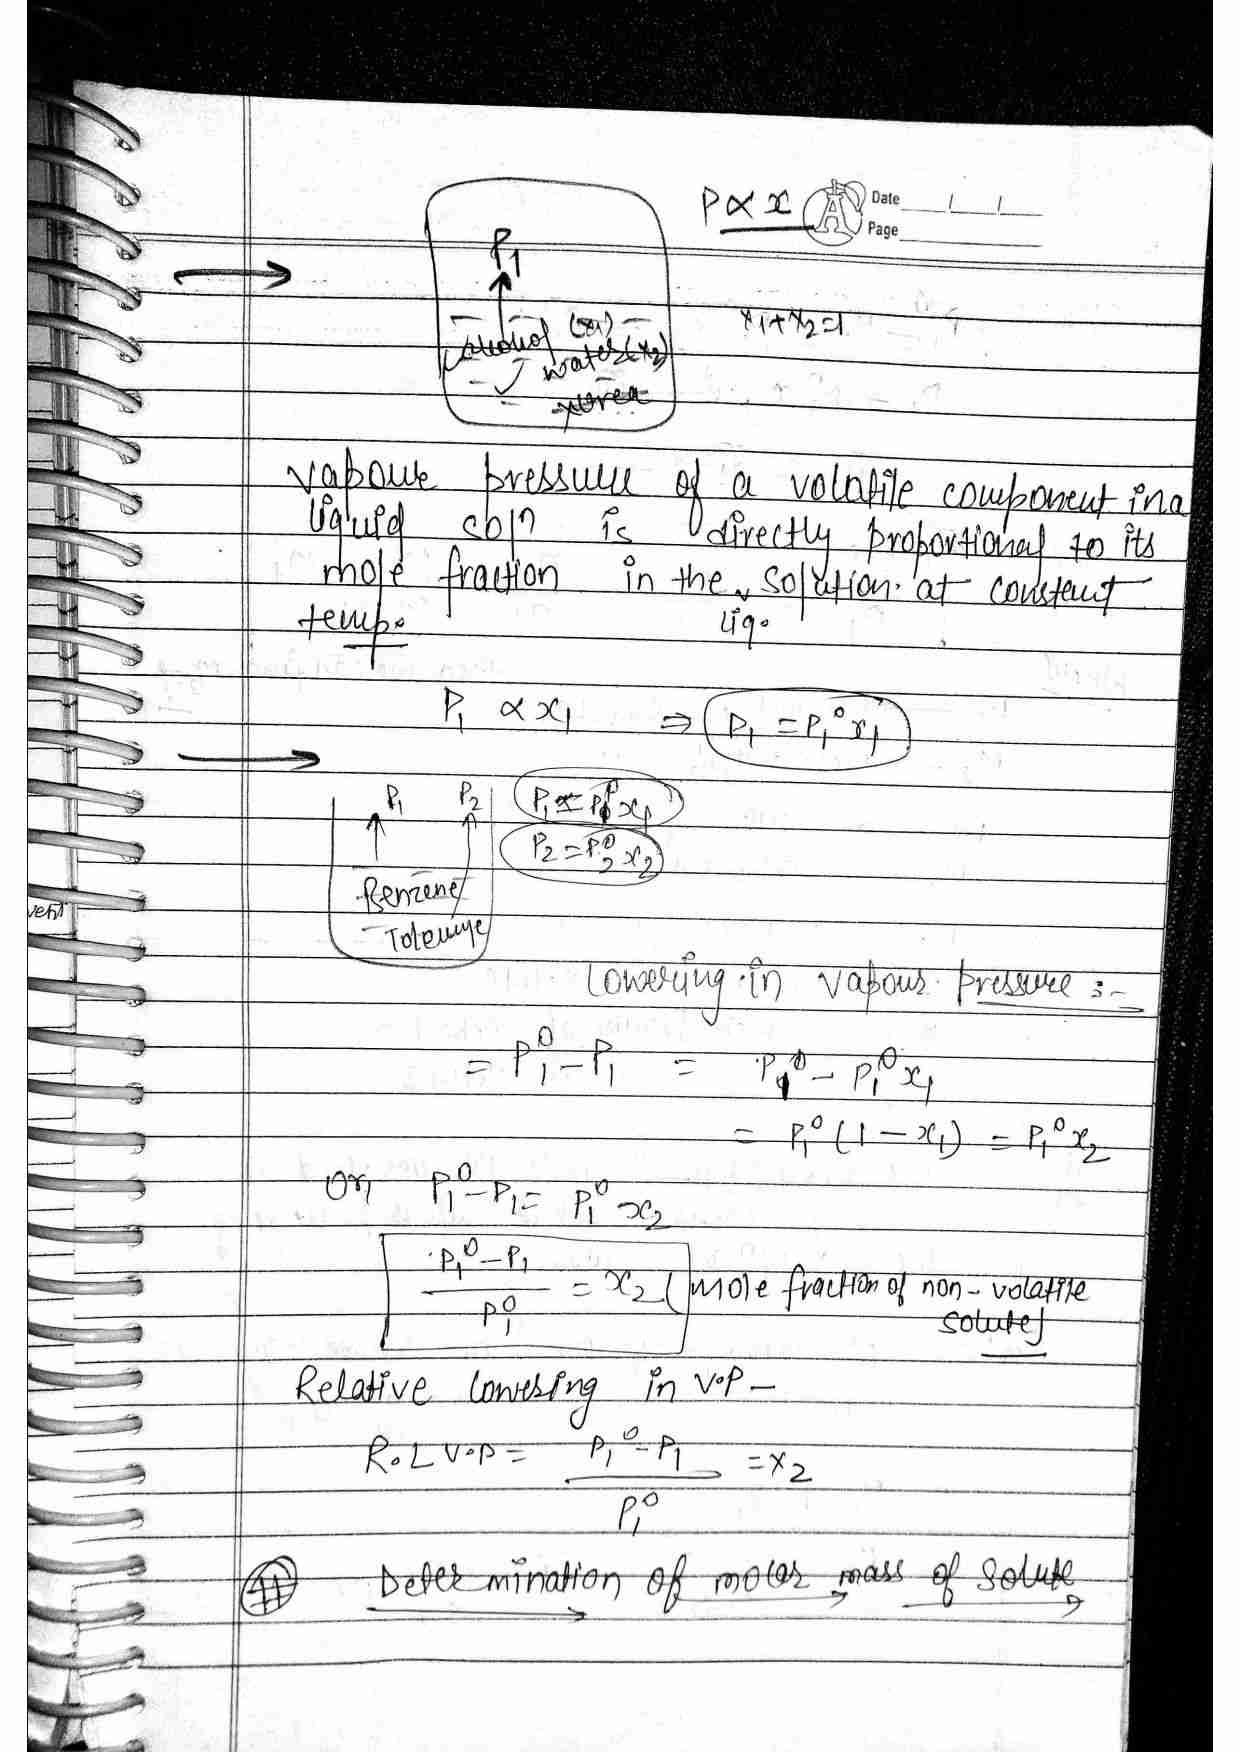 P ∝ x
Date
Page
P₁
x₁+x₂=1
alcohol (x₁)
water(x₂)
urea
vapour pressure of a volatile component in a
liquid solⁿ is directly proportional to its
mole fraction in the solution. at constent
liq.
temp.
P₁ ∝ x₁ ⇒ P₁ = P₁⁰x₁
P₁ P₂
P₁ = P₁⁰x₁
P₂ = P₂⁰x₂
Benzene
Lowering in vapour pressure :-
= P₁⁰ - P₁ = P₁⁰ - P₁⁰x₁
= P₁⁰(1 - x₁) = P₁⁰x₂
Or, P₁⁰ - P₁ = P₁⁰ x₂
P₁⁰ - P₁ / P₁⁰ = x₂ (mole fraction of non-volatile
solute)
Relative lowering in V.P -
R.L V.P = P₁⁰ - P₁ / P₁⁰ = x₂
Determination of molar mass of solute